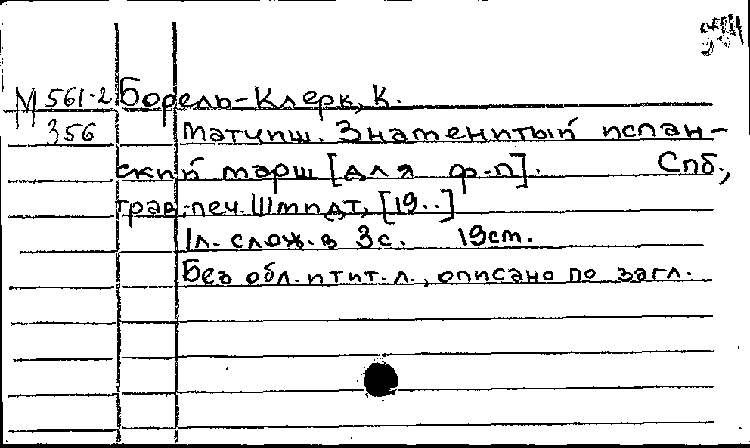 М 561-2 Борель-Клерк, К.
356 Матчиш. Знаменитый испан-
ский марш [для ф-п]. Спб.,
грав.-печ. Шмидт, [19..]
1л. слож. в 3с. 19см.
Без обл. и тит. л., описано по загл.